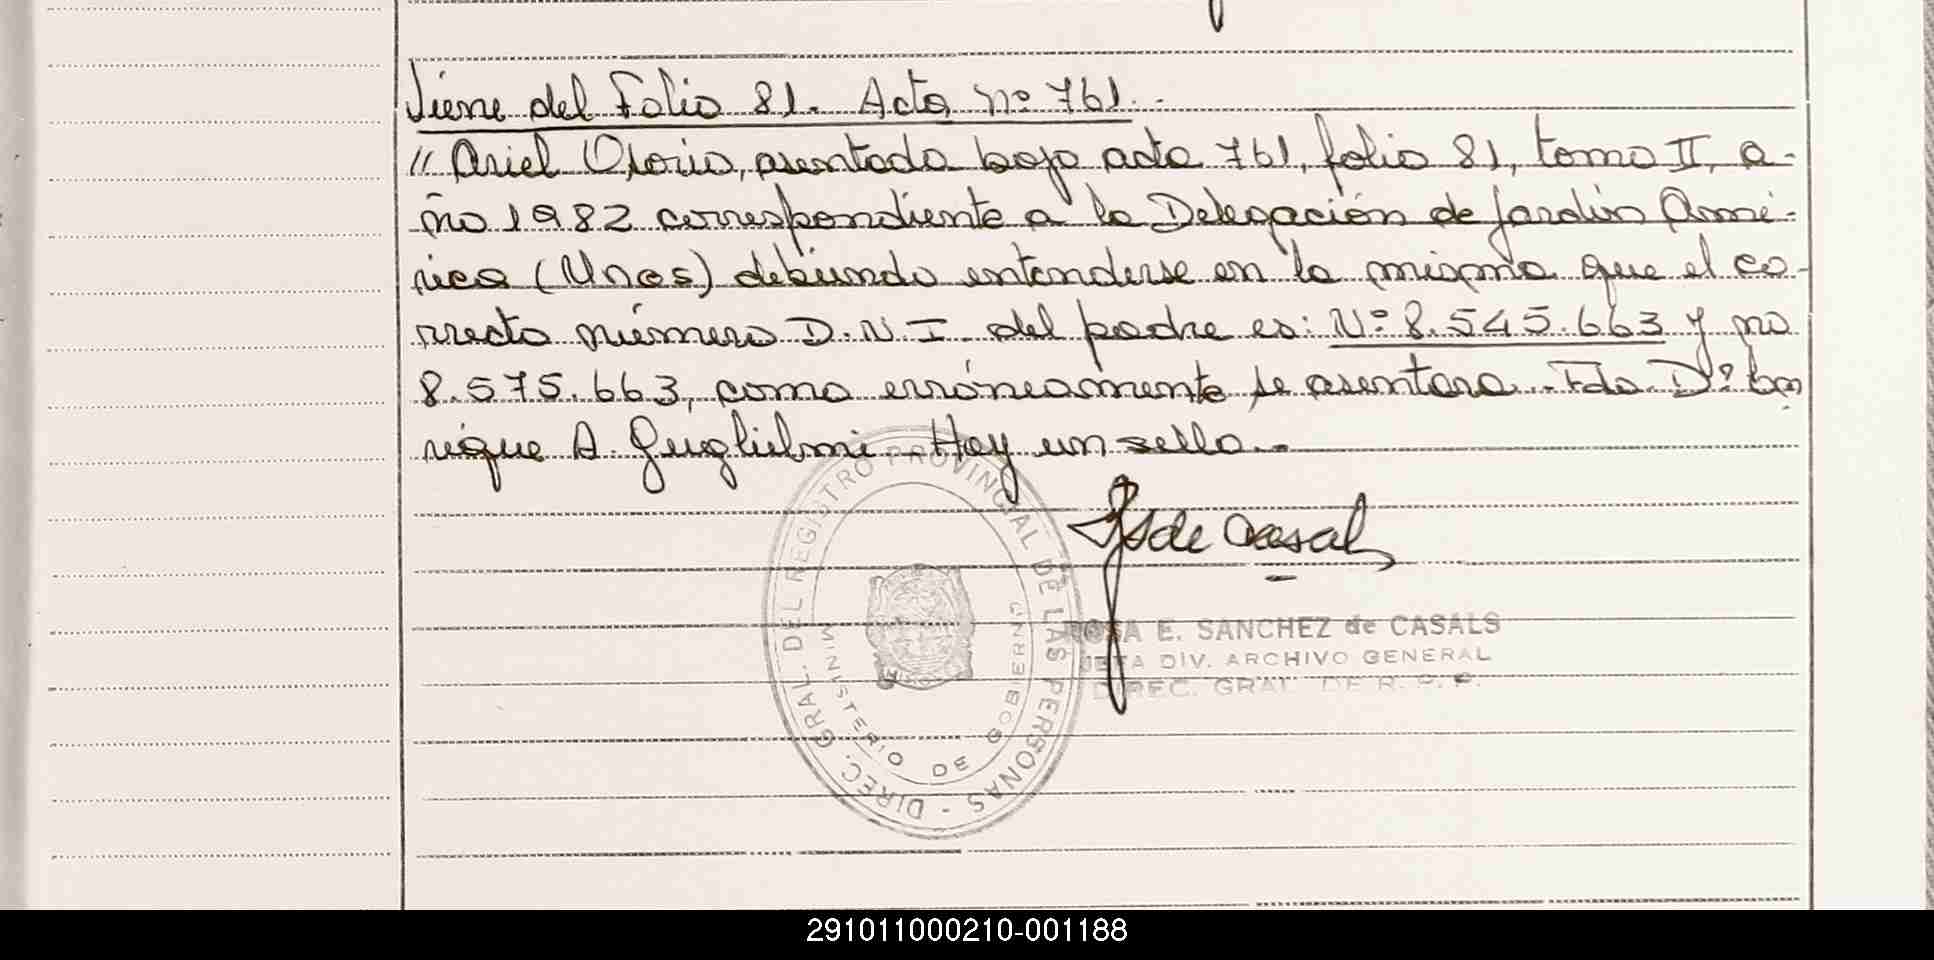 Viene del Folio 81. Acta nº 761.-
" Ariel Osorio, asentada bajo acta 761, folio 81, tomo II, a-
ño 1982 correspondiente a la Delegación de Jardín Amé-
rica (Mnes) debiendo entenderse en la misma que el co-
rrecto número D.N.I. del padre es: Nº 8.545.663 y no
8.575.663, como erróneamente se asentara.- Fdo. Dº
A. Guglielmi. Hay un sello.-
de Casals
DIREC. GRAL. DEL REGISTRO PROVINCIAL DE LAS PERSONAS -
MINISTERIO DE GOBIERNO
ROSA E. SANCHEZ de CASALS
JEFA DIV. ARCHIVO GENERAL
DIREC. GRAL DE R. P. P.
291011000210-001188